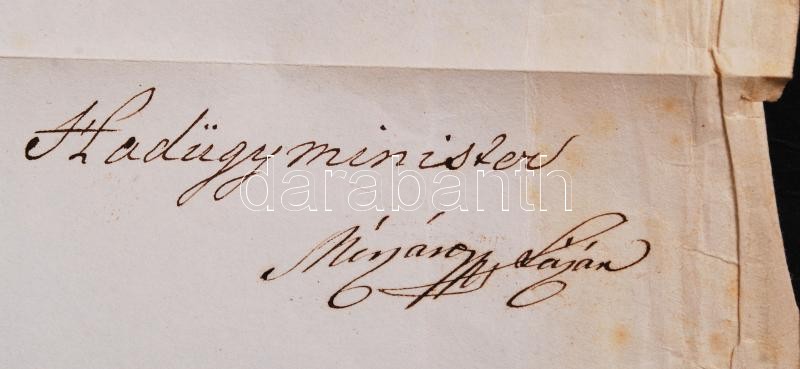 Hadügyminister
darabanth
Mészáros Lázár